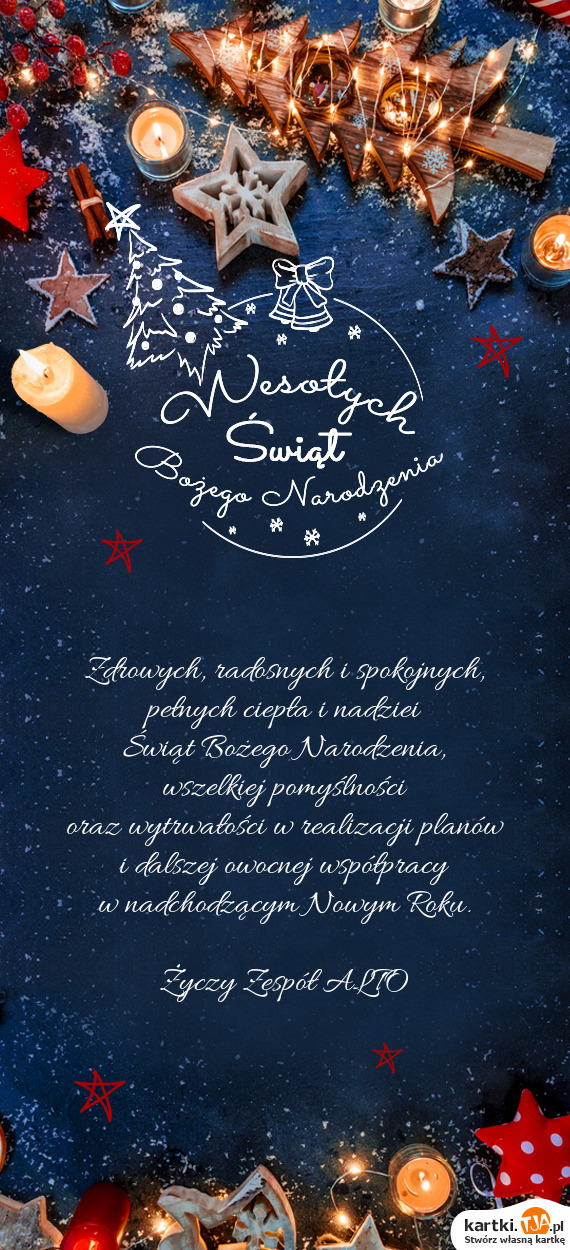 Wesołych
Świąt
Bożego Narodzenia
Zdrowych, radosnych i spokojnych,
pełnych ciepła i nadziei
Świąt Bożego Narodzenia,
wszelkiej pomyślności
oraz wytrwałości w realizacji planów
i dalszej owocnej współpracy
w nadchodzącym Nowym Roku.
Życzy Zespół ALTO
kartki.TJA.pl
Stwórz własną kartkę